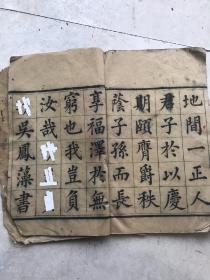 地間一正人
君子於以慶
期頤膺爵秩
蔭子孫而長
享福澤於無
窮也我豈負
汝哉
吳鳳藻書